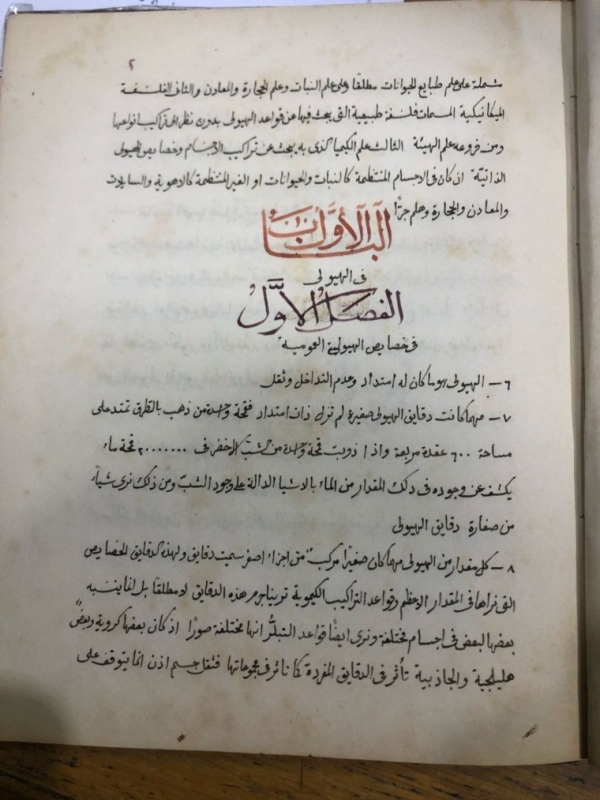 ٢
شملة على علم طبايع الحيوانات مطلقا وعلى علم النبات وعلم الحجارة والمعادن والثانى الفلسفة
الميكانيكية المسمات فلسفة طبيعية التى يبحث فيها عن قواعد الهيولى بدون نظر الى تراكيب انواعها
ومن فروعه علم الهيئة الثالث علم الكيميا الذى به يبحث عن تراكيب الاجسام وخصايص الهيولى
الذاتية ان كان فى الاجسام المنتظمة كالنبات والحيوانات او الغير المنتظمة كالاهوية والسايلات
والمعادن والحجارة وهلم جرّا
الباب الأوّل
فى الهيولى
الفصل الاوّل
فى خصايص الهيولى العومية
٦ – الهيولى هو ما كان له امتداد وعدم التداخل وثقل
٧ – مهما كانت دقايق الهيولى صغيرة لم تزل ذات امتداد فقمحة واحدة من ذهب بالطرق تمتد على
مساحة ٦٠٠ عقدة مربعة واذا ذوبت قمحة واحدة من الشبّ الاخضر فى ٢٠٠٠٠٠٠٠ قمحة ماء
يكشف عن وجوده فى ذلك المقدار من الماء بالاشيا الدالة على وجود الشبّ ومن ذلك نرى شيأ
من صغارة دقايق الهيولى
٨ – كل مقدار من الهيولى مهما كان صغيرًا مركب من اجزاء اصغر سميت دقايق ولهذه الدقايق الخصايص
التى نراها فى المقدار الاعظم وقواعد التراكيب الكيموية ترينا جرم هذه الدقايق لا مطلقا بل انما ينسبه
بعضها لبعض فى اجسام مختلفة ونرى ايضًا قواعد التبلّر انها مختلفة صورًا اذ كان بعضها كروية وبعض
هليلجية والجاذبية تأثر فى الدقايق المفردة كما تاثر فى مجموعاتها فثقل جسم اذن انما يتوقف على